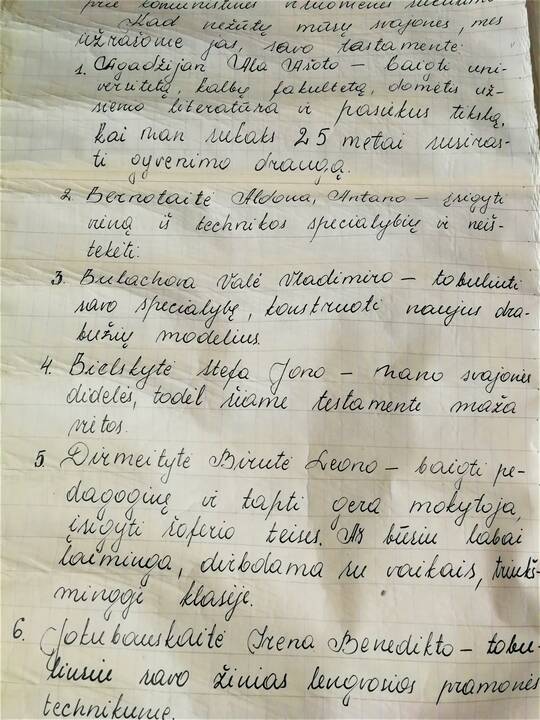 prie komunistinės visuomenės
Kad nežūtų mūsų svajonės, mes
užrašome jas, savo testamente:
1. Agadžijan Ala Ašoto – baigti uni-
versitetą, kalbų fakultetą, domėtis už-
sienio literatūra ir pasiekus tikslą,
kai man sukaks 25 metai susiras-
ti gyvenimo draugą.
2. Bernotaitė Aldona, Antano – įsigyti
vieną iš technikos specialybių ir neiš-
tekėti.
3. Bulachova Valė Vladimiro – tobulinti
savo specialybę, konstruoti naujus dra-
bužių modelius.
4. Bielskytė Stefa Jono – mano svajonės
didelės, todėl šiame testamente maža
vietos.
5. Dirmeitytė Birutė Leono – baigti pe-
dagoginę ir tapti gera mokytoja,
įsigyti šoferio teises. Aš būsiu labai
laiminga, dirbdama su vaikais, triukš-
minggi klasije.
6. Jakubauskaitė Irena Benedikto – tobu-
linsiu savo žinias lengvosios pramonės
technikume.